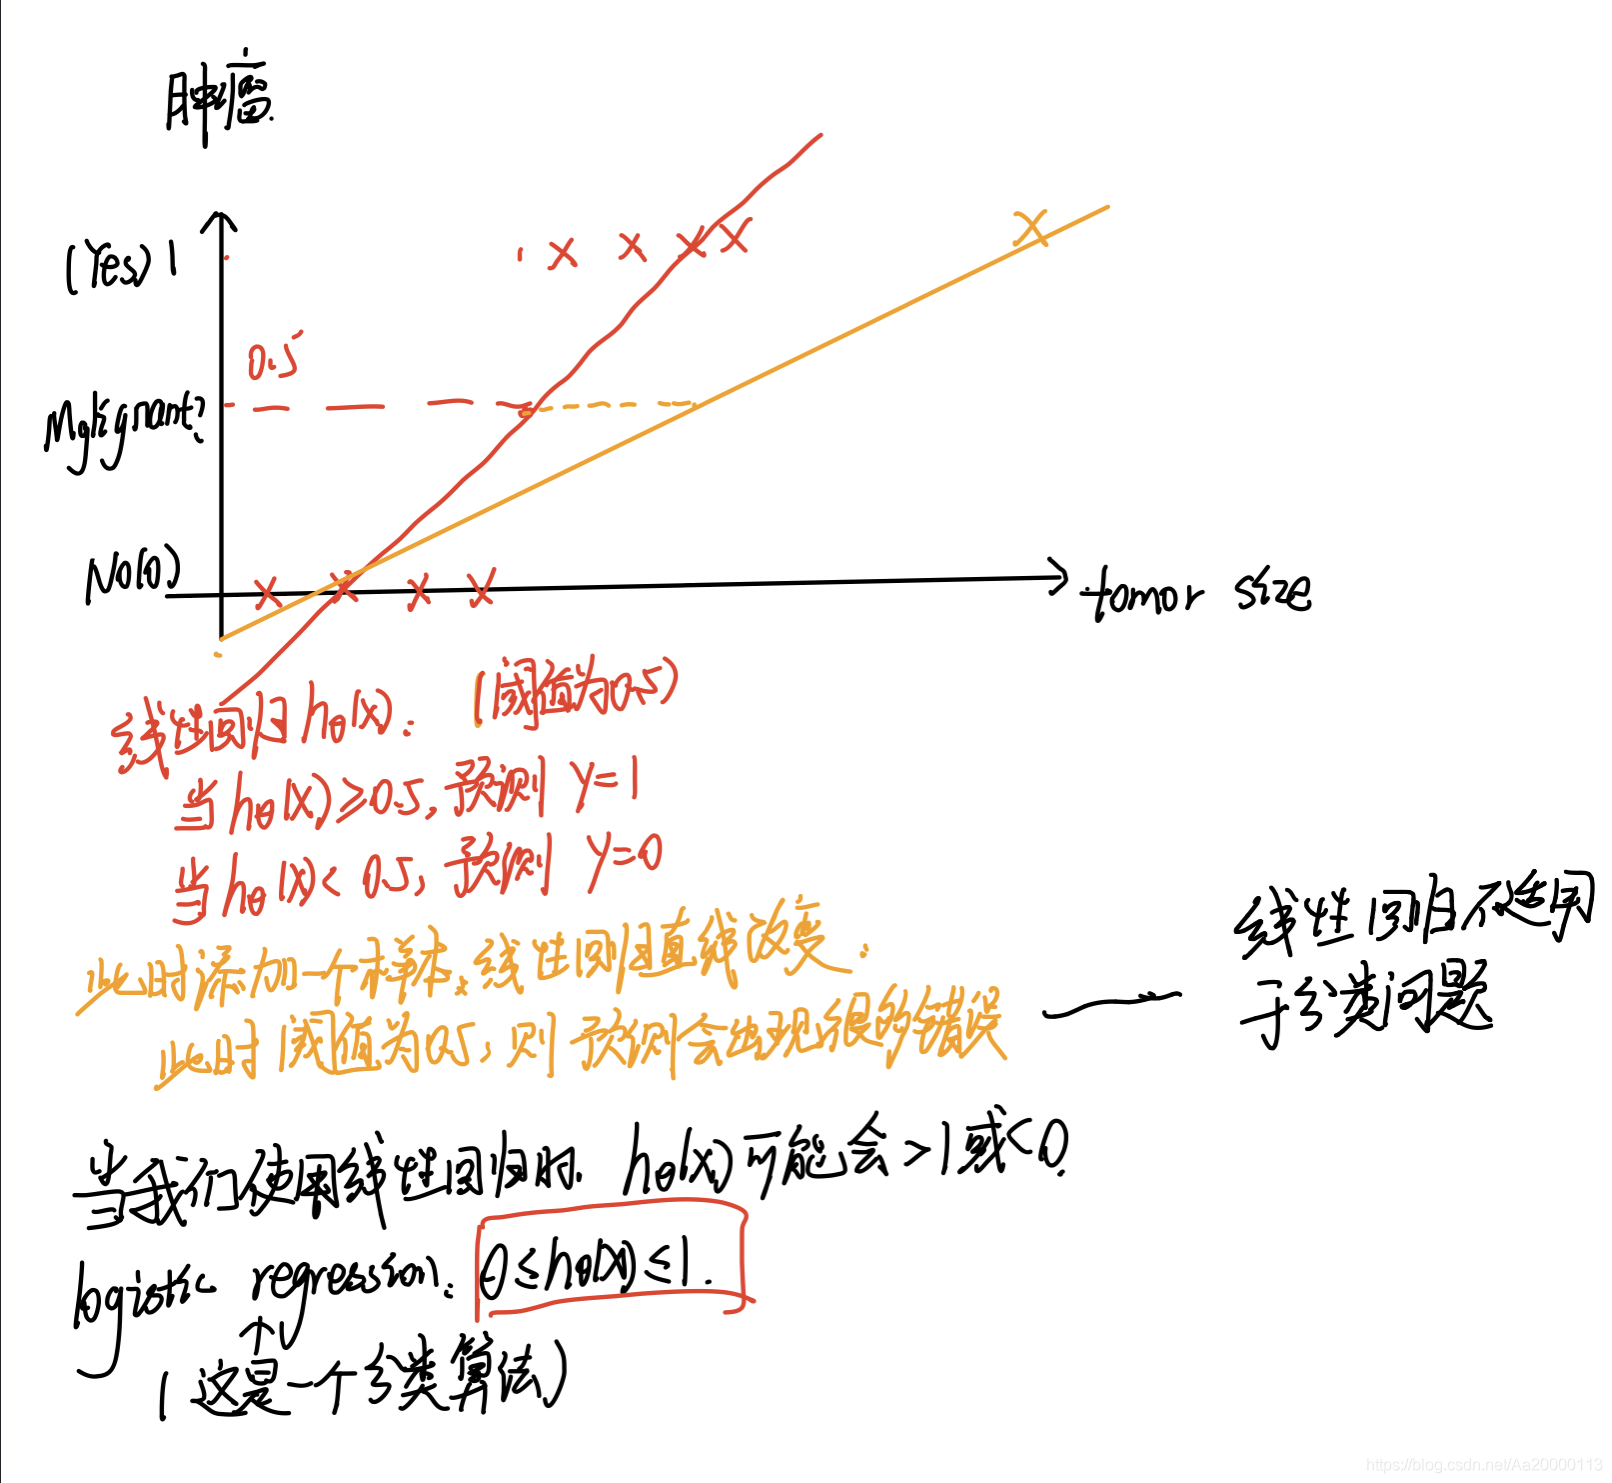 肿瘤.
(Yes) 1
0.5
Malignant?
No(0)
tomor size
线性回归 hθ(x): (阈值为0.5)
当 hθ(x)≥0.5, 预测 y=1
当 hθ(x)< 0.5, 预测 y=0
此时添加一个样本,线性回归直线改变.
此时阈值为0.5, 则预测会出现很多错误
线性回归不适用
于分类问题
当我们使用线性回归时. hθ(x)可能会>1或<0.
logistic regression: 0≤hθ(x)≤1.
(这是一个分类算法)
https://blog.csdn.net/Aa20000113